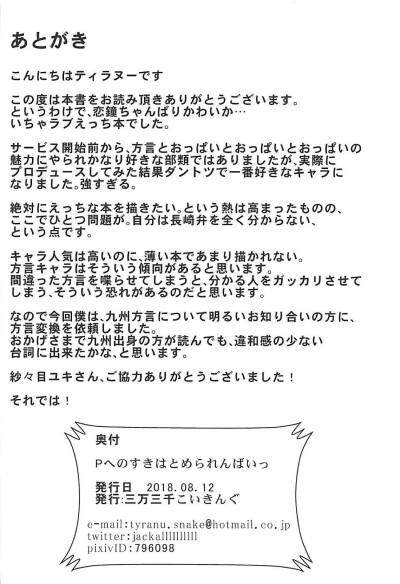 あとがき
こんにちはティラヌーです
この度は本書をお読み頂きありがとうございます。
というわけで、恋鐘ちゃんばりかわいか…
いちゃラブえっち本でした。
サービス開始前から、方言とおっぱいとおっぱいとおっぱいの
魅力にやられかなり好きな部類ではありましたが、実際に
プロデュースしてみた結果ダントツで一番好きなキャラに
なりました。強すぎる。
絶対にえっちな本を描きたい。という熱は高まったものの、
ここでひとつ問題が。自分は長崎弁を全く分からない、
という点です。
キャラ人気は高いのに、薄い本であまり描かれない。
方言キャラはそういう傾向があると思います。
間違った方言を喋らせてしまうと、分かる人をガッカリさせて
しまう、そういう恐れがあるのだと思います。
なので今回僕は、九州方言について明るいお知り合いの方に、
方言変換を依頼しました。
おかげさまで九州出身の方が読んでも、違和感の少ない
台詞に出来たかな、と思います。
紗々目ユキさん、ご協力ありがとうございました！
それでは！
奥付
Pへのすきはとめられんばいっ
発行日　2018.08.12
発行:三万三千こいきんぐ
e-mail:tyranu.snake@hotmail.co.jp
twitter:jackallllllllll
pixivID:796098